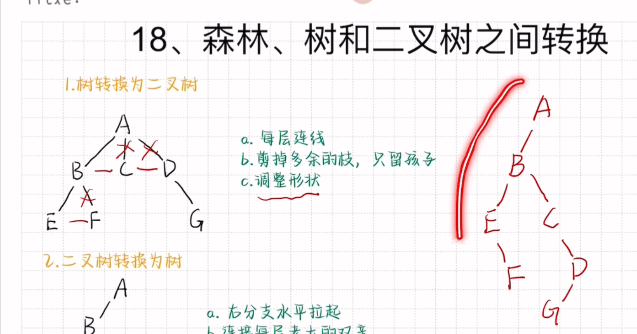 18、森林、树和二叉树之间转换
1.树转换为二叉树
A
B C D
E F G
a. 每层连线
b.剪掉多余的枝，只留孩子
c.调整形状
A
B
E C
F D
G
2.二叉树转换为树
A
B
a. 右分支水平拉起